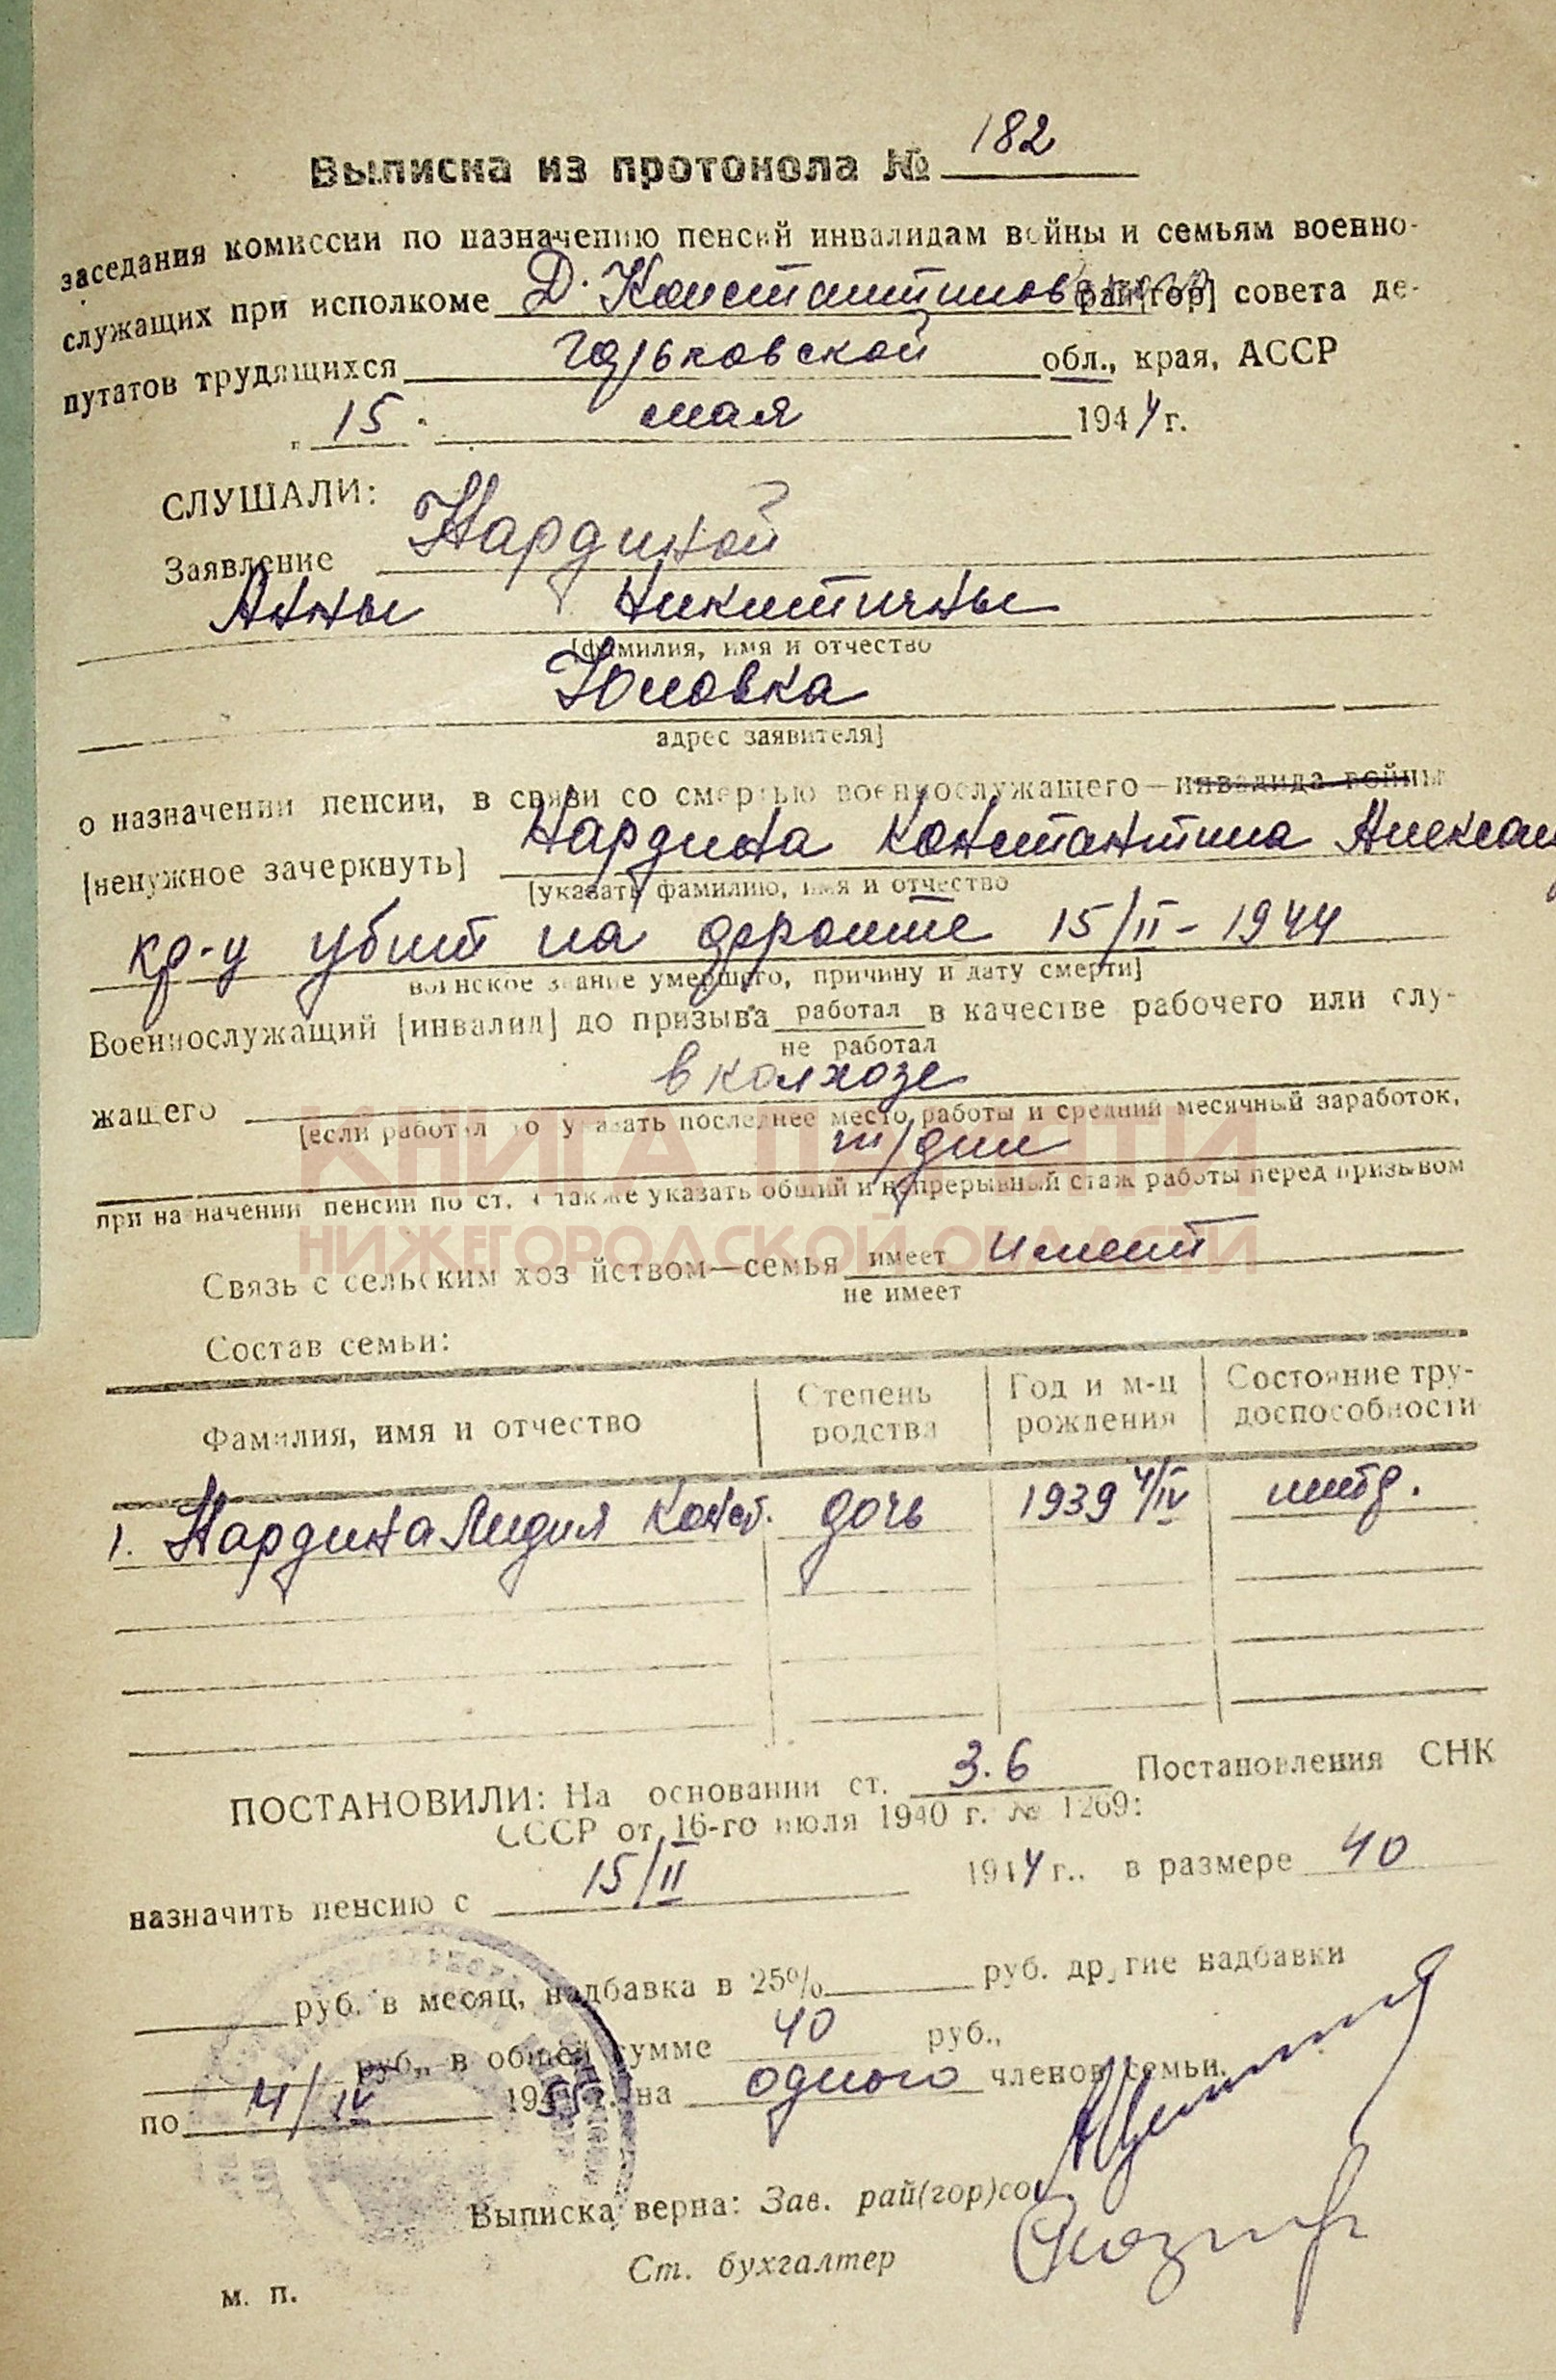 Выписка из протокола № 182
заседания комиссии по назначению пенсий инвалидам войны и семьям военно-
служащих при исполкоме Д. Константиновском рай[гор] совета де-
путатов трудящихся Горьковской обл., края, АССР
" 15 " мая 1944 г.
СЛУШАЛИ:
Заявление Нардиной
Анны Никитичны
[фамилия, имя и отчество
Юмовка
адрес заявителя]
о назначении пенсии, в связи со смертью военнослужащего — инвалида войны
[ненужное зачеркнуть] Нардина Константина Алексан
[указать фамилию, имя и отчество
кр-ц убит на фронте 15/II - 1944
воинское звание умершего, причину и дату смерти]
Военнослужащий [инвалид] до призыва работал в качестве рабочего или слу-
не работал
жащего в колхозе
[если работал то указать последнее место работы и средний месячный заработок,
т/дни
при назначении пенсии по ст. 4 также указать общий и непрерывный стаж работы перед призывом
КНИГА ПАМЯТИ
НИЖЕГОРОДСКОЙ ОБЛАСТИ
Связь с сельским хозяйством—семья имеет имеет
не имеет
Состав семьи:
Фамилия, имя и отчество Степень родства Год и м-ц рождения Состояние тру-доспособности
1. Нардина Лидия Конст. дочь 1939 4/IV
ПОСТАНОВИЛИ: На основании ст. 3.6 Постановления СНК
СССР от 16-го июля 1940 г. № 1269:
назначить пенсию с 15/II 1944 г., в размере 40
руб. в месяц, надбавка в 25% руб. другие надбавки
руб., в общей сумме 40 руб.,
по 4/IV 1955 г. на одного членов семьи.
Выписка верна: Зав. рай(гор)со
Ст. бухгалтер
м. п.